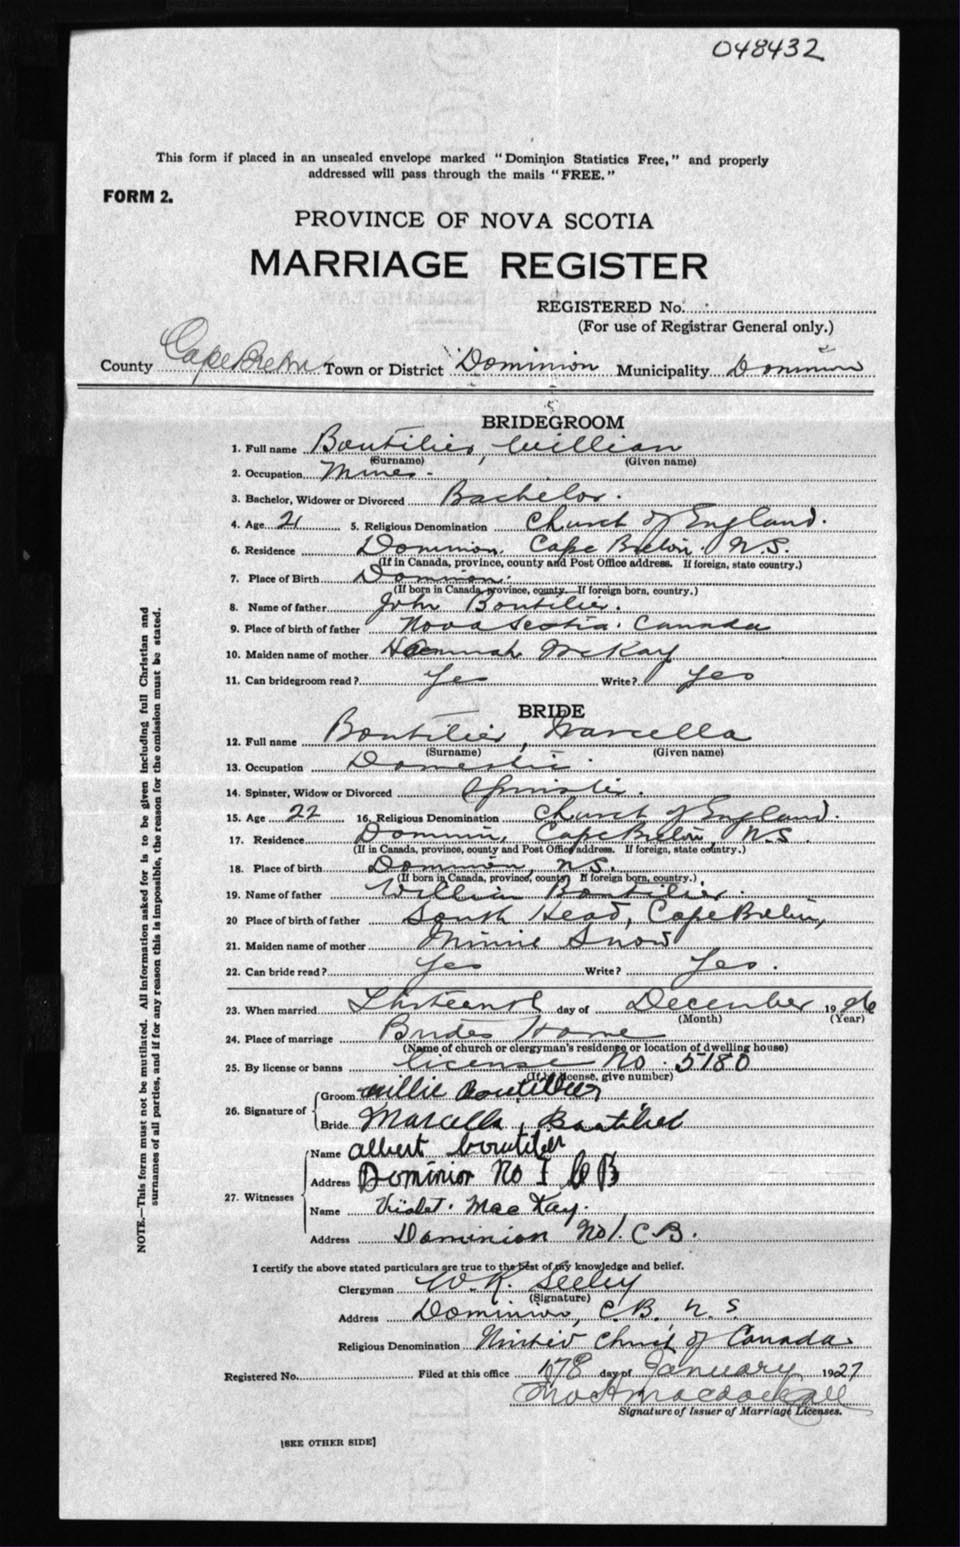 048432
This form if placed in an unsealed envelope marked "Dominion Statistics Free," and properly
addressed will pass through the mails "FREE."
FORM 2.
PROVINCE OF NOVA SCOTIA
MARRIAGE REGISTER
REGISTERED No.
(For use of Registrar General only.)
County Cape Breton Town or District Dominion Municipality Dominion
BRIDEGROOM
1. Full name Boutilier, William
(Surname) (Given name)
2. Occupation Miner
3. Bachelor, Widower or Divorced Bachelor.
4. Age 21 5. Religious Denomination Church of England.
6. Residence Dominion. Cape Breton. N.S.
(If in Canada, province, county and Post Office address. If foreign, state country.)
7. Place of Birth Dominion.
(If born in Canada, province, county. If foreign born, country.)
8. Name of father John Boutilier.
9. Place of birth of father Nova Scotia. Canada
10. Maiden name of mother Hannah McKay
11. Can bridegroom read? Yes Write? Yes
BRIDE
12. Full name Boutilier, Marcella
(Surname) (Given name)
13. Occupation Domestic
14. Spinster, Widow or Divorced Spinster.
15. Age 22 16. Religious Denomination Church of England.
17. Residence Dominion, Cape Breton, N.S.
(If in Canada, province, county and Post Office address. If foreign, state country.)
18. Place of birth Dominion, N.S.
(If born in Canada, province, county. If foreign born, country.)
19. Name of father William Boutilier.
20 Place of birth of father South Head, Cape Breton,
21. Maiden name of mother Minnie Snow
22. Can bride read? Yes Write? Yes.
23. When married Thirteenth day of December 1926
(Month) (Year)
24. Place of marriage Brides Home
(Name of church or clergyman's residence or location of dwelling house)
25. By license or banns license No 5180
(If by license, give number)
26. Signature of
Groom Willie Boutilier
Bride Marcella, Boutilier
27. Witnesses
Name albert boutilier
Address Dominion No 1 C B
Name Violet. MacKay.
Address Dominion No 1. C.B.
I certify the above stated particulars are true to the best of my knowledge and belief.
Clergyman W. K. Seeley
(Signature)
Address Dominion, C.B. N.S
Religious Denomination United Church of Canada
Registered No. Filed at this office 17 day of January 1927
Signature of Issuer of Marriage Licenses.
[SEE OTHER SIDE]
NOTE.—This form must not be mutilated. All information asked for is to be given including full Christian and
surnames of all parties, and if for any reason this is impossible, the reason for the omission must be stated.